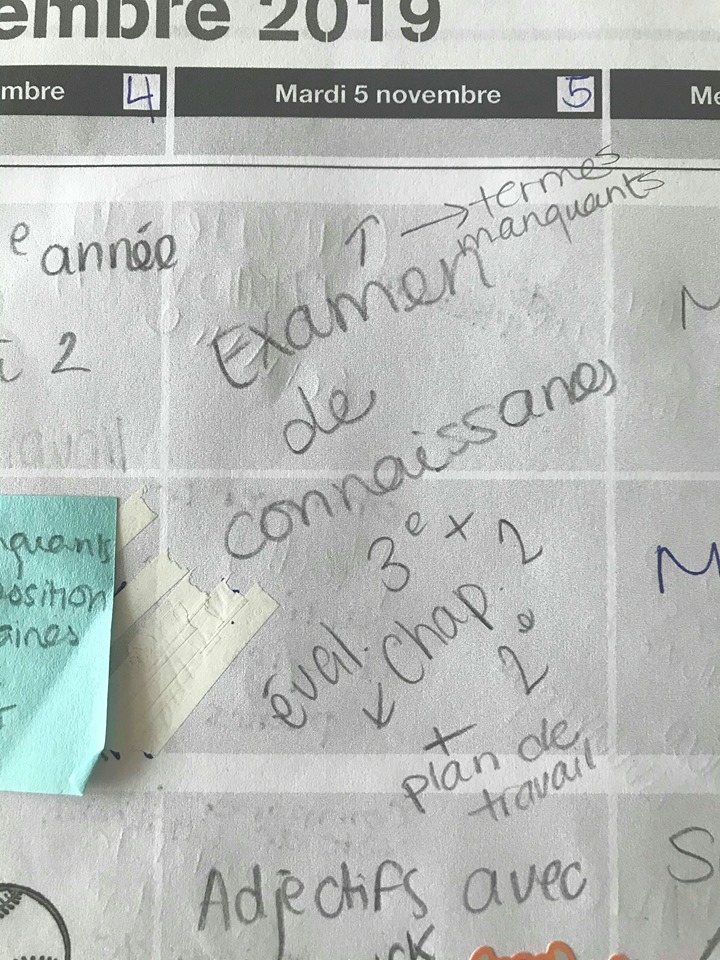 embre 2019
mbre 4
Mardi 5 novembre 5
Me
e année
2
↑ → termes
manquants
Examen
de
connaissances
3e x 2
éval. Chap.
↓ 2e
+
plan de
travail
quants
osition
aines
M
Adjectifs avec
S